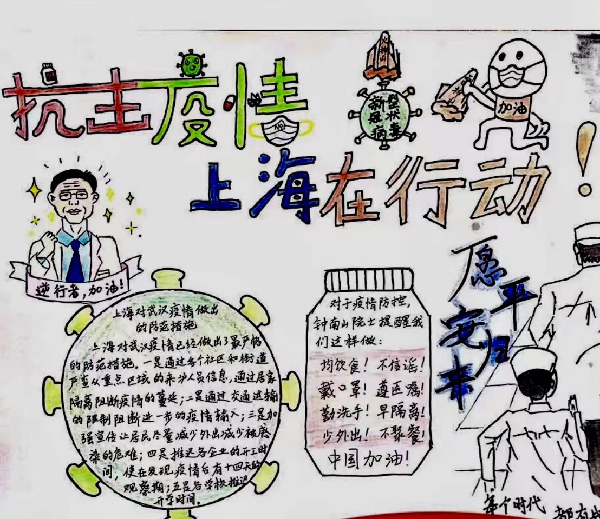 抗击疫情
新型
冠状
病毒
加油
上海在行动!
逆行者,加油!
上海对武汉疫情做出
的防范措施
上海对武汉疫情已经做出了最严格
的防范措施。一是通过每个社区和街道
严查从重点区域的来沪人员信息,通过居家
隔离阻断疫情的蔓延;二是通过交通运输
的强制阻断进一步的疫情输入;三是加
强宣传让居民尽量减少外出减少被感
染的危难;四是推迟各企业的开工时
间,使在发现疫情台有十四天的
观察期;五是各学校推迟
开学时间.
对于疫情防控,
钟南山院士提醒我
们这样做:
均饮食! 不信谣!
戴口罩! 遵医嘱!
勤洗手! 早隔离!
少外出! 不聚餐!
中国加油!
愿平
安归
来
每个时代
都有